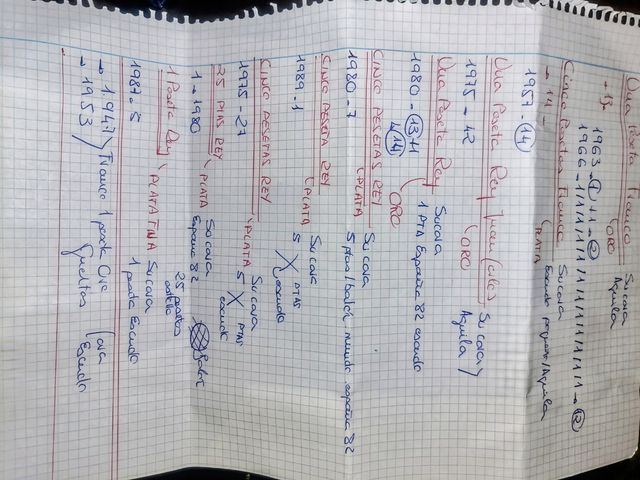 Una Peseta Franco (ORO Su cara Aguila
1963 - 1 + 1 - 2
1966 - 1 1 1 1 1 1 1 1 1 1 1 1
Cinco Pesetas Franco (PLATA Su cara Escudo pequeño/Aguila
→ 14 -
1987 - 14
Una Peseta Rey Juan Carlos (ORO Su cara y Aguila
1975 - 42
Una Peseta Rey (ORO Su cara 1 PTA España 82 escudo
1980 - 13 + 1
14
CINCO PESETAS REY (PLATA Su cara 5 ptas/balon mundo españa 82
1980 - 7
CINCO PESETA REY (PLATA Su cara 5 X PTAS escudo
1989 - 1
CINCO PESETAS REY (PLATA Su cara 5 X PTAS escudo
1975 - 27
25 PTAS REY (PLATA Su cara España 82 Balon
1 - 1980
25 pesetas
1 Peseta Rey (PLATA FINA Su cara 1 peseta Escudo
1987 - 5
→ 1.947 Franco 1 peseta Oro Cara
→ 1953 Escudo